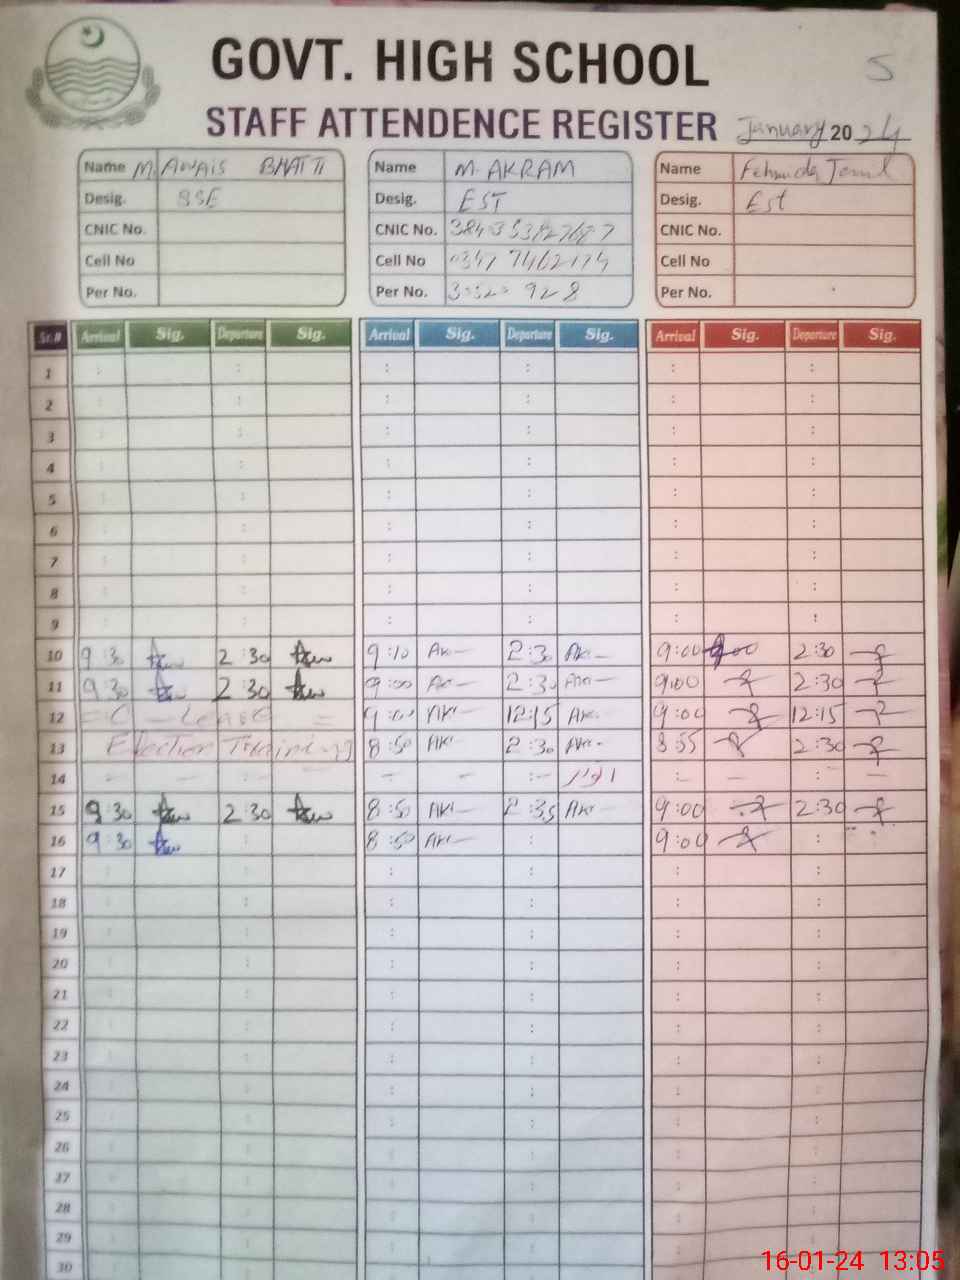 GOVT. HIGH SCHOOL
5
STAFF ATTENDENCE REGISTER January 2024
Name M. AWAIS BHATTI
Desig. SSE
CNIC No.
Cell No
Per No.
Name M. AKRAM
Desig. EST
CNIC No.
Cell No
Per No.
Name
Desig. Est
CNIC No.
Cell No
Per No.
Sr.# Arrival Sig. Departure Sig. Arrival Sig. Departure Sig. Arrival Sig. Departure Sig.
1 : : : : : :
2 : : : : : :
3 : : : : : :
4 : : : : : :
5 : : : : : :
6 : : : : : :
7 : : : : : :
8 : : : : : :
9 : : : : : :
10 9:30 2:30 9:10 2:30 9:00 9:00 2:30
11 9:30 2:30 9:00 2:30 9:00 2:30
12 = C - Leave = 9:00 12:15 9:00 12:15
13 Election Training 8:50 2:30 8:55 2:30
14 - - - - - - :- اتوار :- - : -
15 9:30 2:30 8:50 2:35 9:00 2:30
16 9:30 : 8:50 : 9:00 :
17 : : : : : :
18 : : : : : :
19 : : : : : :
20 : : : : : :
21 : : : : : :
22 : : : : : :
23 : : : : : :
24 : : : : : :
25 : : : : : :
26 : : : : : :
27 : : : : : :
28 : : : : : :
29 : : : : : :
30 : : : : : :
16-01-24 13:05